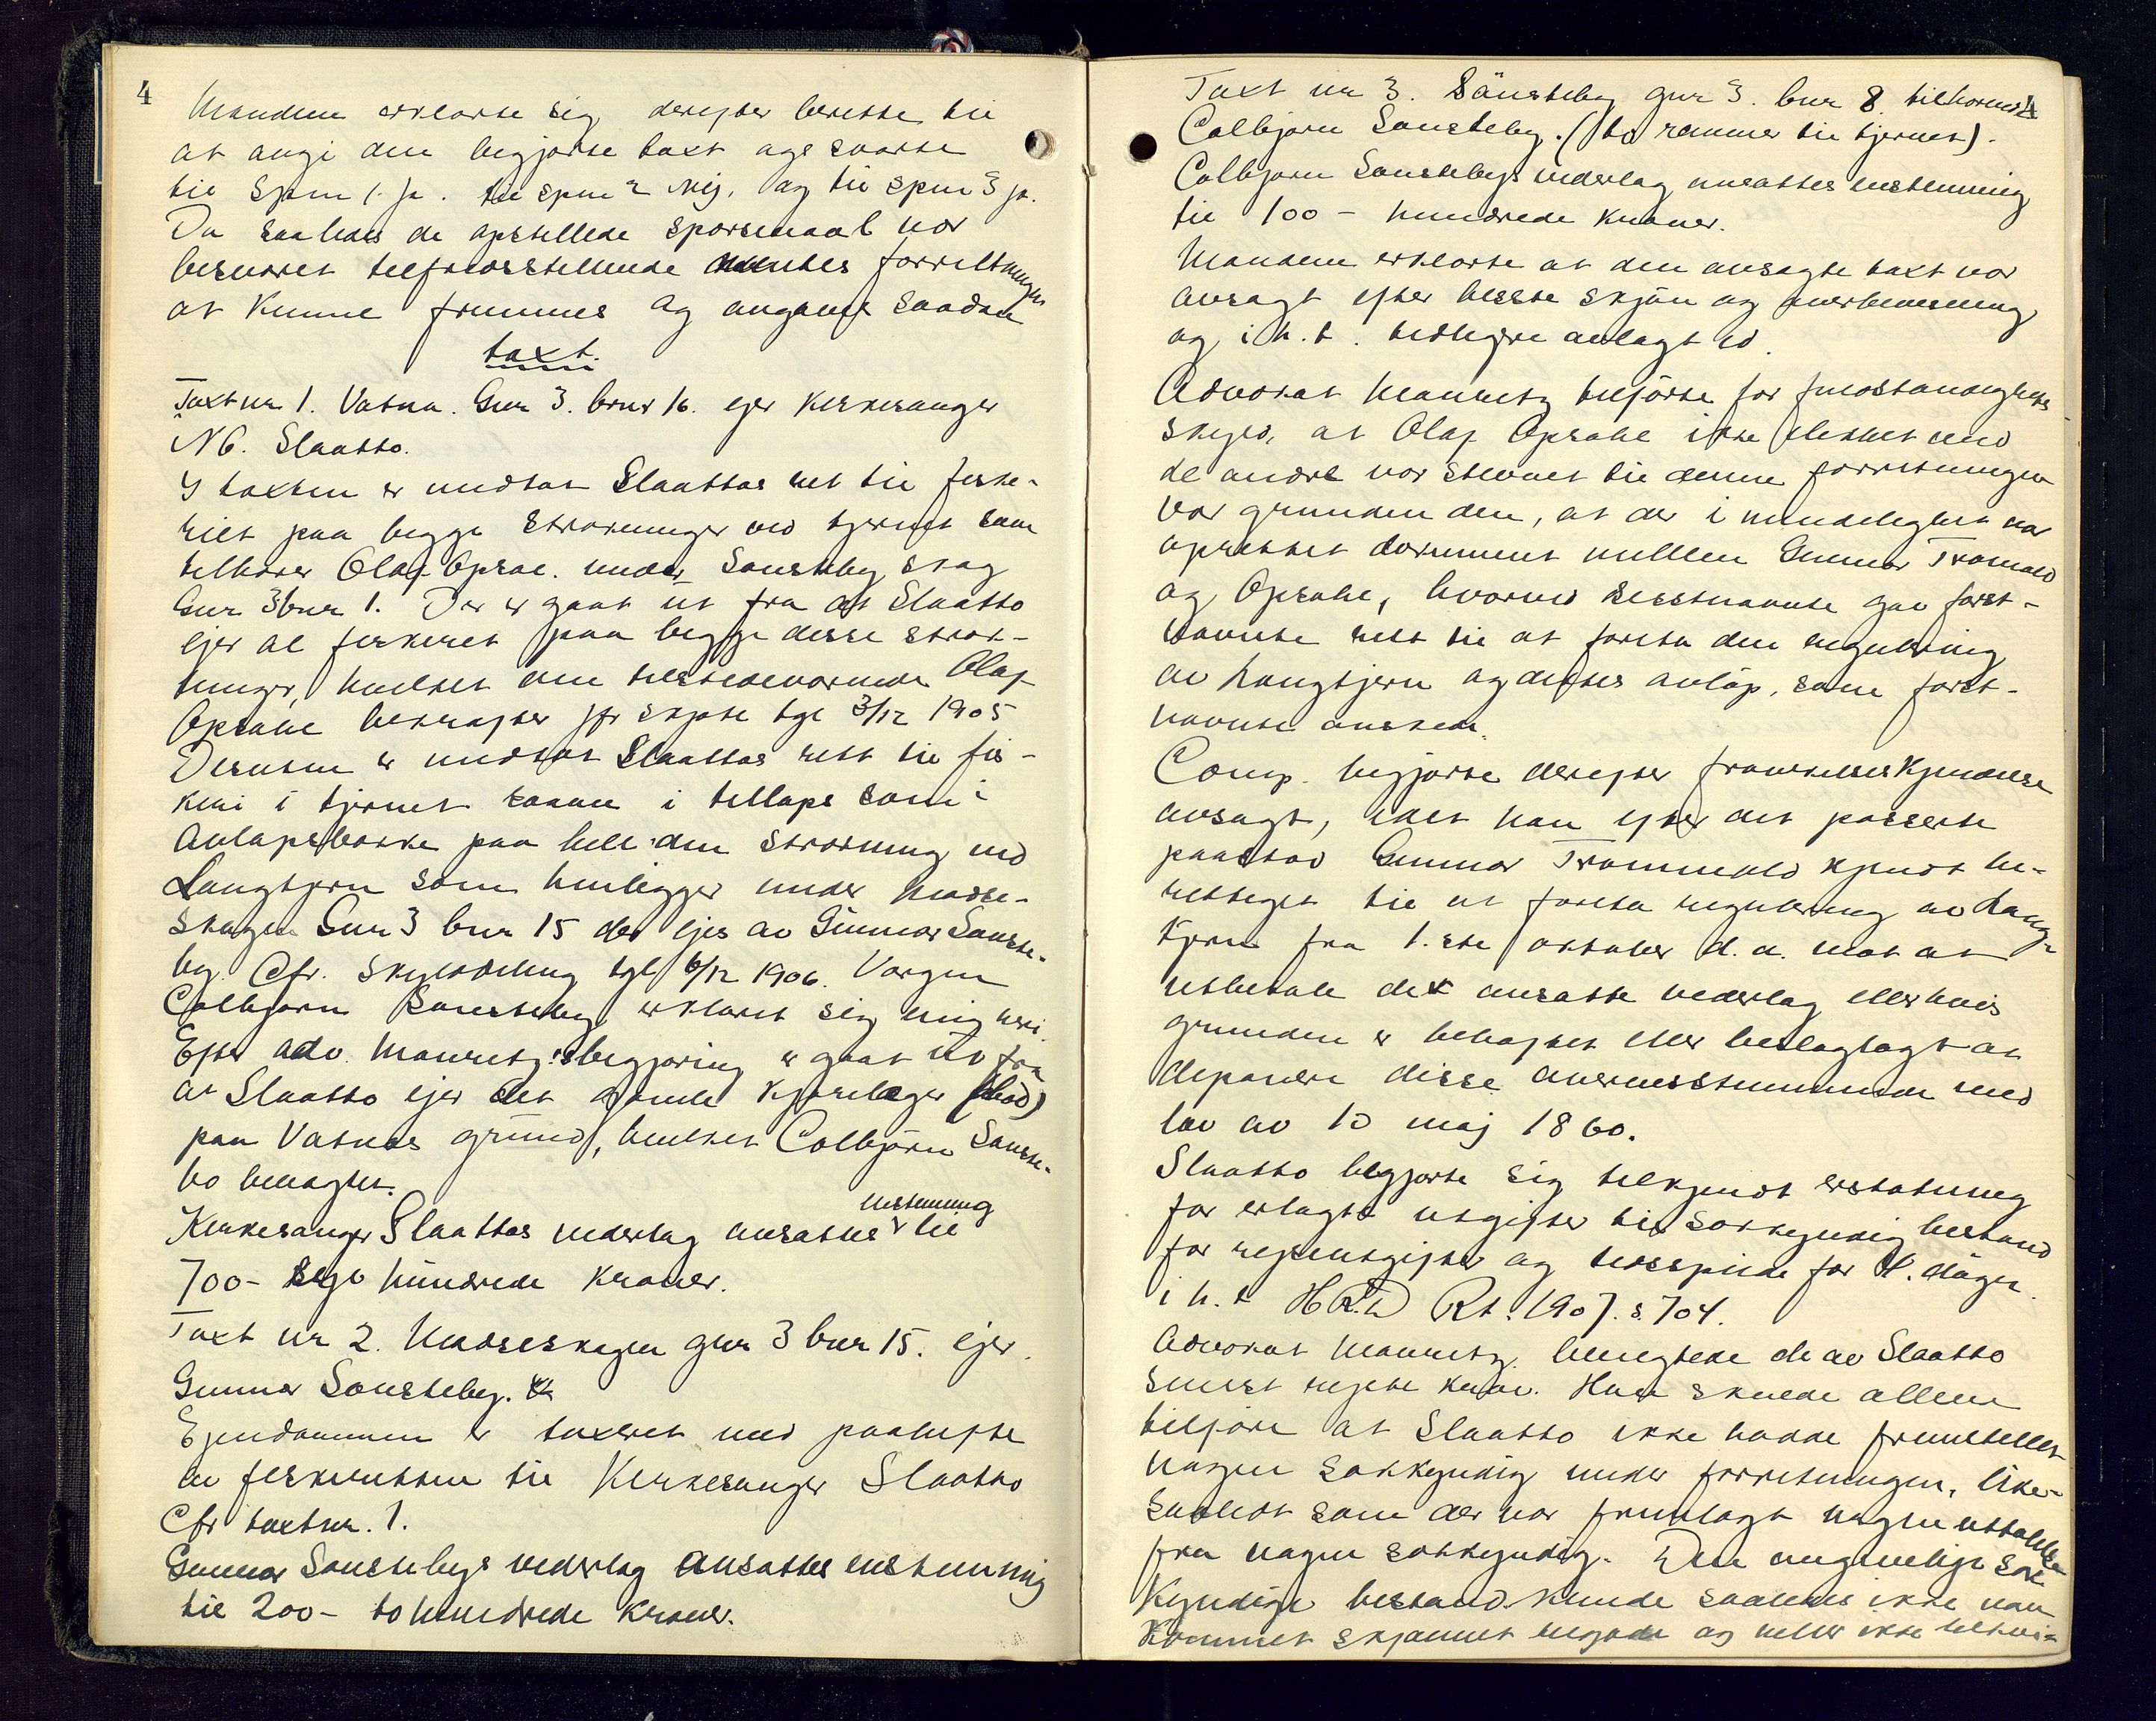 4
Mændene erklærte sig derefter berette til
at angi den begjærte taxt og svarte
til Spm 1. Ja. til spm 2 Nej, og til spm 3 ja.
Da saaledes de opstillede spørsmaal var
besvaret tilfredsstillende antes forretningen
at kunne fremmes og angaves saadan
taxt.
Taxt nr 1. Vatna. Gnr 3. brnr 16. ejer Kirkesanger
N6. Slaatto.
I taxten er undtat Slaattos ret til fiske-
riet paa begge strækninger ved tjernet som
tilhører Olaf Opsal. under Sønsteby skog
Gnr 3 bnr 1. Der er gaat ut fra at Slaatto
ejer al fiskeret paa begge disse stræk-
ninger, hvilket den tilstedeværende Olaf
Opsahl bekræfter jfr skjøte tgl 3/12 1905
Desuten er undtat Slaattos rett til fis-
keri i tjernet saavel i tilløps som i
Avløpsbække paa hele den strækning ved
Langtjern som henligger under Madse-
skogen Gnr 3 bnr 15 der ejes av Gunnar Sønste-
by. Cfr. Skylddeling tgl 6/12 1906. Værgen
Colbjørn Sønsteby erklæret sig enig heri.
Efter adv. Mauritz's begjæring er gaat ut fra
at Slaatto ejer det gamle kjøreleger (stød)
paa Vatnas grund, hvilket Colbjörn Sønste-
bø benægter.
Kirkesanger Slaattos vederlag ansattes enstemmig til
700- Syv hundrede kroner.
Taxt nr 2. Madseskogen gnr 3 bnr 15. ejer
Gunnar Sønsteby.
Ejendommen er taxeret med paaheftte
av fiskeretten til Kirkesanger Slaatto
Cfr taxtnr. 1.
Gunnar Sønstebys vederlag ansattes enstemmig
til 200- to hundrede kroner.
Taxt nr 3. Sönsteby gnr 3. bnr 8. tilhørende
Colbjørn Sønsteby. (to rammer til tjernet).
Colbjørn Sønstebys vederlag ansattes enstemmig
til 100 - hundrede kroner.
Mændene erklærte at den avsagte taxt var
avsagt efter beste skjön og overbevisning
og i h. t. tidligere avlagt ed.
Advokat Mauritz tilførte for fuldstændigheds
skyld, at Olaf Opsahl ikke likket med
de andre var stevnet til denne forretningen
var grunden den, at der i mindelighet var
oprettet dokument mellem Gunnar Trømald
og Opsahl, hvorved sisstnævnte gav først-
nævnte rett til at foreta den regulering
av Langtjern og dettes avløp, som først-
nævnte ønsket.
Comp. begjærte derefter fravikelseskjendelse
avsagt, idet han efter det passerte
paastod Gunnar Trømmald kjendt be-
rettiget til at foreta regulering av Lang-
tjern fra 1.ste oktober d. a. mot at
utbetale det ansatte vederlag eller hvis
grunden er behæftet eller beslaglagt at
deponere disse avernesstummen med
lov av 10 maj 1860.
Slaatto begjærte sig tilkjendt erstatning
for erlagte utgifter til sakkyndig bestand
for rejseutgifter og tidsspilde for 4. dager.
i h. t. H.R.D Rt. 1907. s. 704.
Advokat Mauritz benegtede de av Slaatto
senest rejste krav. Han skulde allene
tilføre at Slaatto ikke hadde fremstillet
nogen sakkyndig under forretningen, like-
saalidt som der var fremlagt nogen uttalelse
fra nogen sakkyndig. Den angivelige sak
kyndige bestand kunde saaledes ikke være
kommet skjønnet tilgode og heller ikke tilhvi-